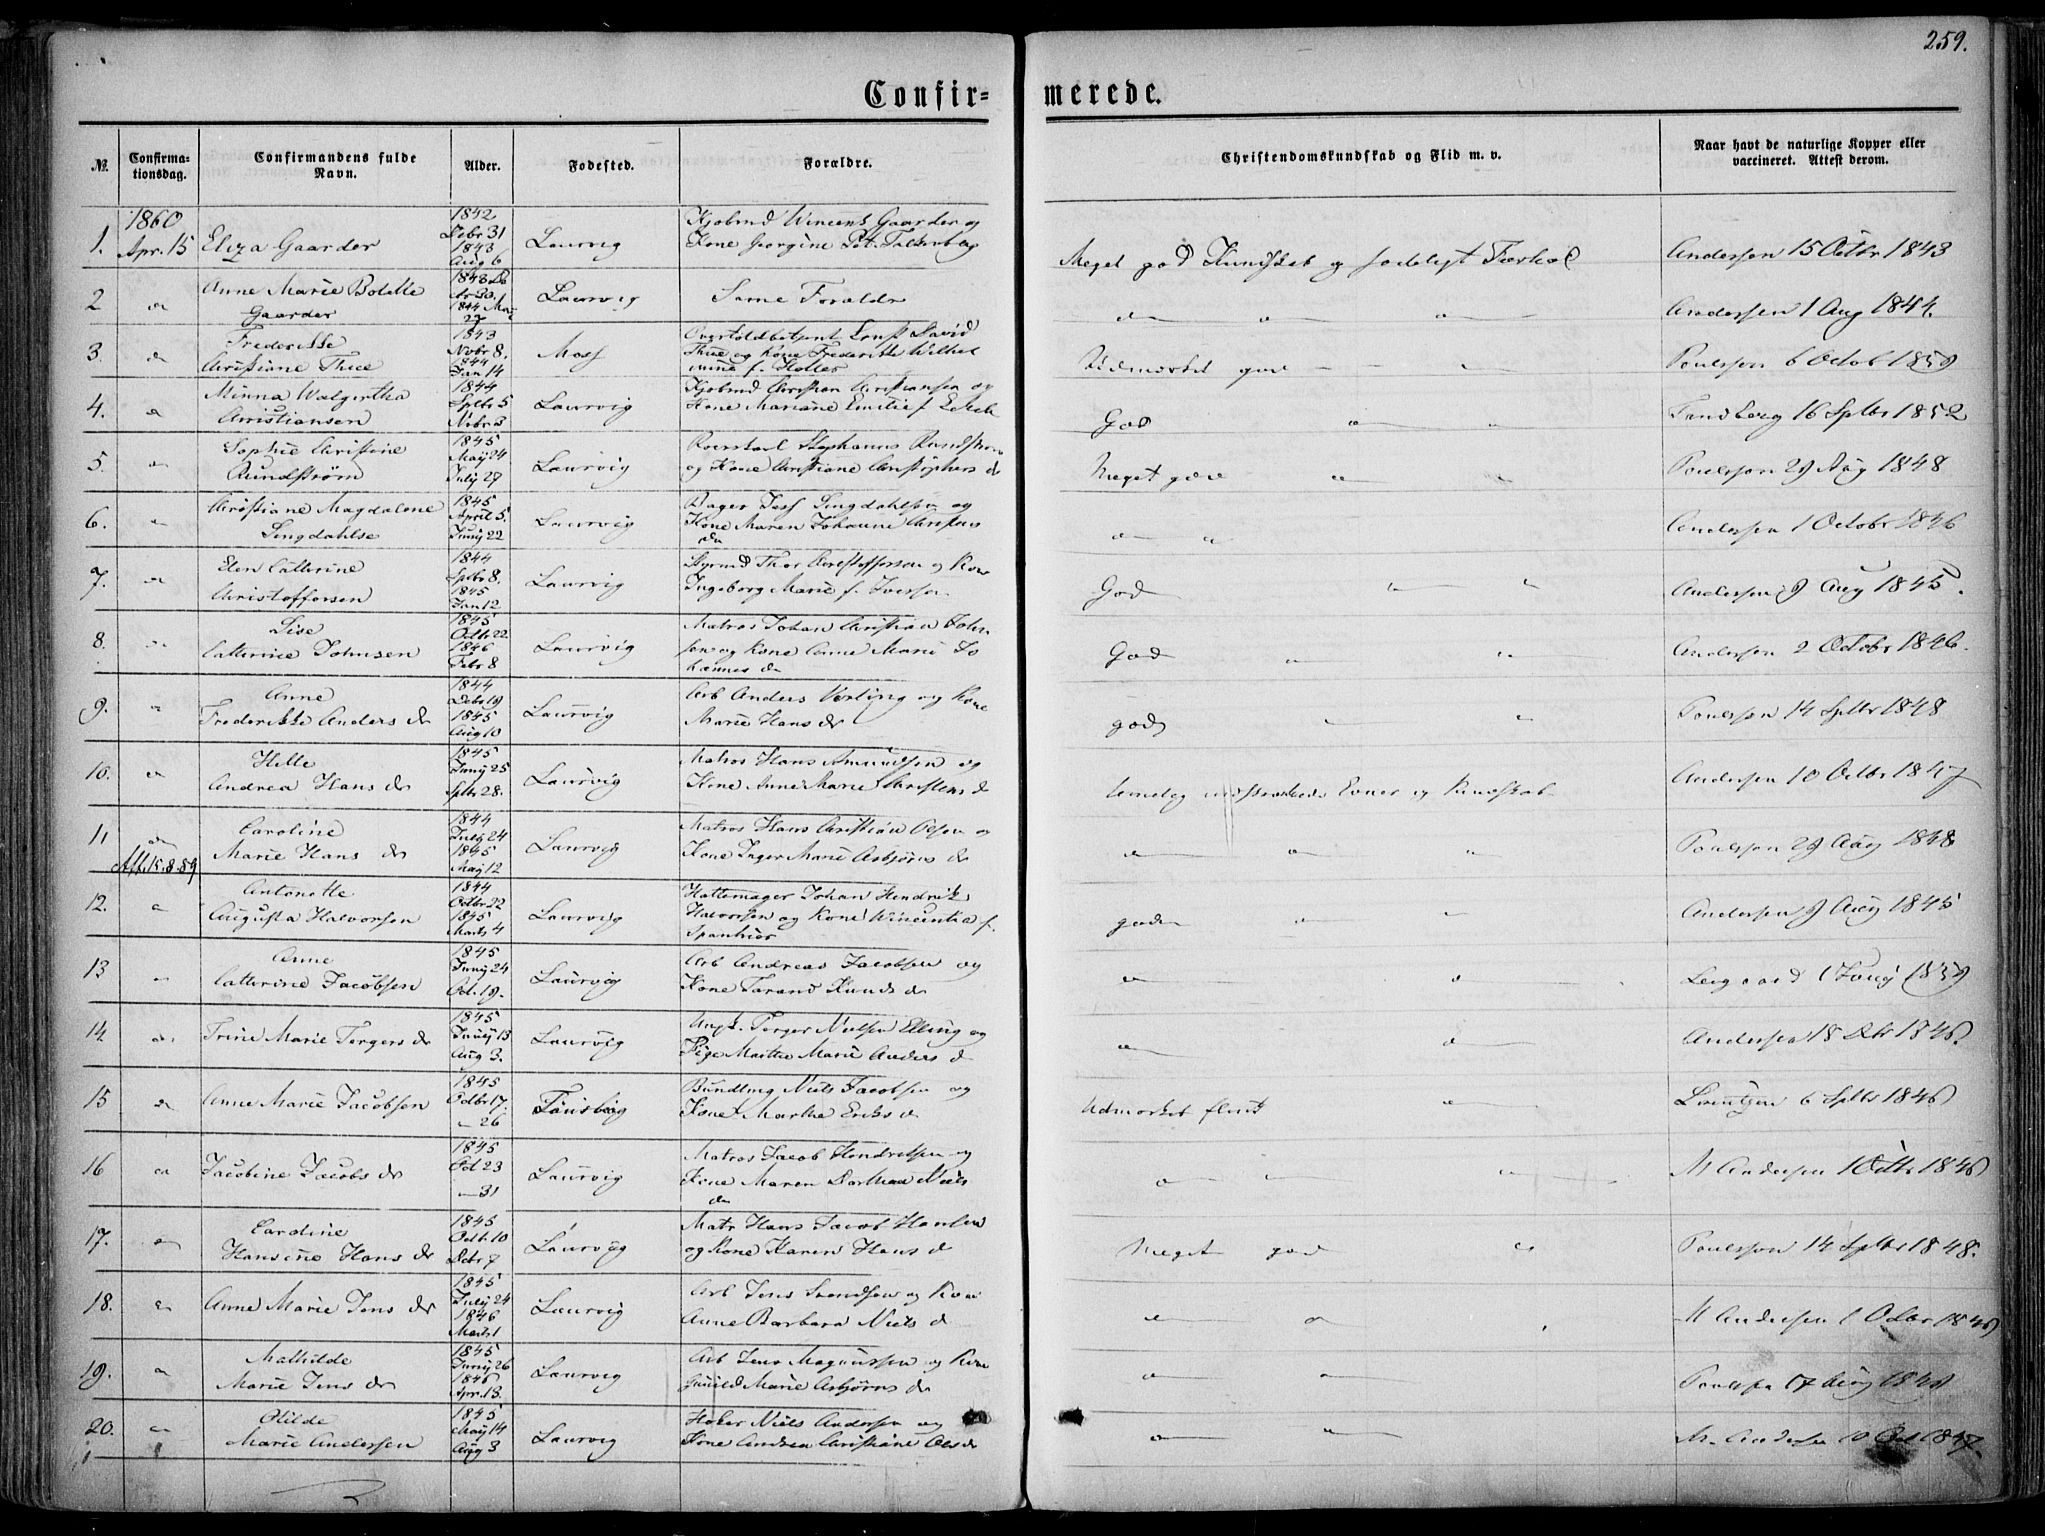 259.
Confir= merede.
№. Confirma=tionsdag. Confirmandens fulde Navn. Alder. Fødested. Forældre. Christendomskundskab og Flid m. v. Naar havt de naturlige Kopper eller vaccineret. Attest derom.
1. 1860 Apr. 15 Eliza Gaarder 1842 Debr 31 1843 Aug 6 Laurvig Kjøbmd Wincent Gaarder og Kone Georgine Meget god Kundskab og sædeligt Forhol Anderssen 15 Octbr 1843
2 Anne Marie Bolette Gaarder Laurvig Samme Forældr Anderssen 1 Aug 1844.
3. Frederikke Christiane Thue 1843 Novbr 8. 1844 Jan 14 Moss Overtoldbetjent Ernst David Thue og Kone Frederikke Wilhelmine f. Holter Udmærket god Poulsson 6 Octob 1859
4. Minna Walgertha Christiansen 1844 Sptbr 5 Nvbr 3 Laurvig Kjøbmd Christian Christiansen og Kone Mariane Emilie f God Tandberg 16 Sptbr 1852
5. Sophie Christine Rundstrøm 1845 May 24 July 29 Laurvig Stephanus og Kone Christiane Christophers dr Meget god Poulsson 29 Aug 1848
6. Christiane Magdalene Lingdahlse 1845 April 5. Juny 22 Laurvig Bager Lingdahlsen og Kone Maren Johanne Christens dr Anderssen 1 Octobr 1846
7. Elen Cathrine Christoffersen 1844 Sptbr 8. 1845 Jan 12 Laurvig Styrmd Thor Christoffersen og Kone Ingeborg Marie f. Iversen God Anderssen 9 Aug 1845.
8. Lise Cathrine Johnsen 1845 Octbr 22 1846 Febr 8 Laurvig Matros Johan Christian Johnsen og Kone Anne Marie Johannes dr God Anderssen 2 Octobr 1846.
9. Anne Frederikke Anders dr 1844 Debr 19 1845 Aug 10 Laurvig Arb Anders og Kone Marie Hans dr god Poulsson 14 Sptbr 1848
10. Helle Andrea Hans dr 1845 Juny 25 Sptbr 28. Laurvig Matros Hans Amundsen og Kone Anne Marie Christens d Evner og Kundskab Anderssen 10 Octbr 1847
11 Att. 15.8.89 Caroline Marie Hans dr 1844 July 24 1845 May 12 Laurvig Matros Hans Christian Olsen og Kone Inger Marie Asbjørns dr Poulsson 29 Aug 1848
12. Antonette Augusta Halvorsen 1844 Octbr 22 1845 Marts 4 Laurvig Hattemager Johan Hendrik Halvorsen og Kone Wincentia f. god Anderssen 9 Aug 1845
13 Anne Cathrine Jacobsen 1845 Juny 24 Oct. 19. Laurvig Arb Andreas Jacobsen og Kone Tarand Knuds dr
14. Trine Marie Tergers dr 1845 Juny 13 Aug 3. Laurvig Ungk. Terger Nielsen Elling og Pige Marthe Marie Anders d Anderssen 18
15 Anne Marie Jacobsen 1845 Octbr 17. 26 Tønsberg Niels Jacobsen og Kone Marthe Eriks d Udmærket flink 6 Sptbr 1846
16 Jacobine Jacobs dr 1845 Oct 23 31 Laurvig Matros Jacob Hendriksen og Kone Maren Dorthea Niels dr M Anderssen 1 Octbr 1846
17. Caroline Hansine Hans dr 1845 Octbr 10 Debr 7 Laurvig Matr Hans Jacob Hansen og Kone Karen Hans d Meget god Poulsson 14 Sptbr 1848.
18. Anne Marie Jens dr 1845 July 24 1846 Marts 1 Laurvig Arb Jens Svendsen og Kone Anne Barbara Niels d M Anderssen 1 Octbr 1846
19. Mathilde Marie Jens dr 1845 Juny 26 1846 Apr. 13. Laurvig Arb Jens Magnussen og Kone Gunild Marie Asbjørns dr Poulsson 17 Aug
20. Olilde Marie Andersen 1845 May 14 Aug 3 Laurvig Niels Andersen og Kone Andrea Christiane Ols dr M. Anderssen 10 Oct 1847.